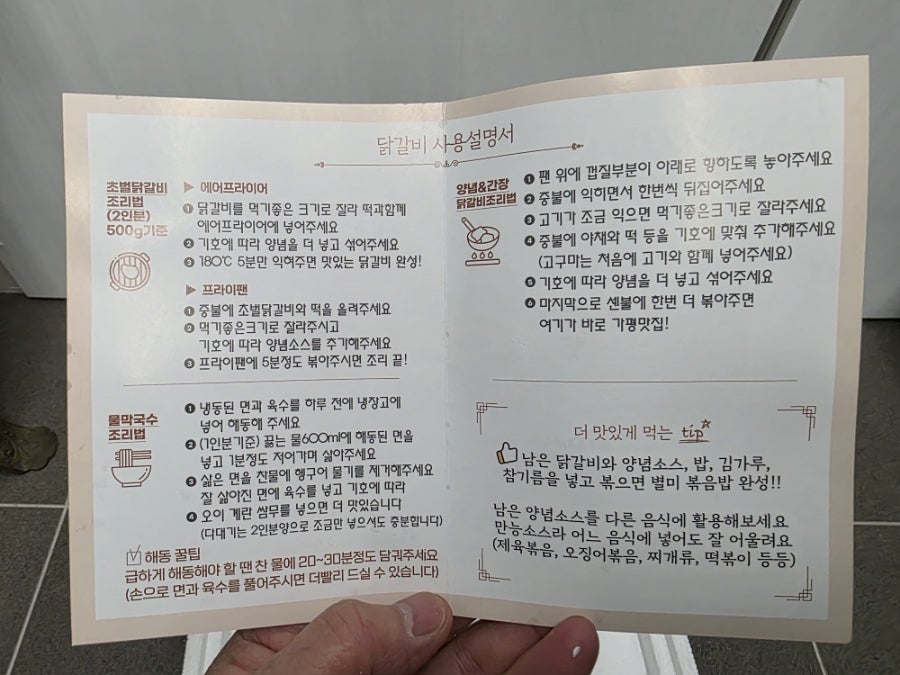 닭갈비 사용설명서
초벌닭갈비
조리법
(2인분)
500g기준
▶ 에어프라이어
❶ 닭갈비를 먹기좋은 크기로 잘라 떡과함께
에어프라이어에 넣어주세요
❷ 기호에 따라 양념을 더 넣고 섞어주세요
❸ 180℃ 5분만 익혀주면 맛있는 닭갈비 완성!
▶ 프라이팬
❶ 중불에 초벌닭갈비와 떡을 올려주세요
❷ 먹기좋은크기로 잘라주시고
기호에 따라 양념소스를 추가해주세요
❸ 프라이팬에 5분정도 볶아주시면 조리 끝!
물막국수
조리법
❶ 냉동된 면과 육수를 하루 전에 냉장고에
넣어 해동해 주세요
❷ (1인분기준) 끓는 물600ml에 해동된 면을
넣고 1분정도 저어가며 삶아주세요
❸ 삶은 면을 찬물에 헹구어 물기를 제거해주세요
잘 삶아진 면에 육수를 넣고 기호에 따라
❹ 오이 계란 쌈무를 넣으면 더 맛있습니다
(다대기는 2인분양으로 조금만 넣으셔도 충분합니다)
해동 꿀팁
급하게 해동해야 할 땐 찬 물에 20~30분정도 담궈주세요
(손으로 면과 육수를 풀어주시면 더빨리 드실 수 있습니다)
양념&간장
닭갈비조리법
❶ 팬 위에 껍질부분이 아래로 향하도록 놓아주세요
❷ 중불에 익히면서 한번씩 뒤집어주세요
❸ 고기가 조금 익으면 먹기좋은크기로 잘라주세요
❹ 중불에 야채와 떡 등을 기호에 맞춰 추가해주세요
(고구마는 처음에 고기와 함께 넣어주세요)
❺ 기호에 따라 양념을 더 넣고 섞어주세요
❻ 마지막으로 센불에 한번 더 볶아주면
여기가 바로 가평맛집!
더 맛있게 먹는 tip
남은 닭갈비와 양념소스, 밥, 김가루,
참기름을 넣고 볶으면 별미 볶음밥 완성!!
남은 양념소스를 다른 음식에 활용해보세요
만능소스라 어느 음식에 넣어도 잘 어울려요
(제육볶음, 오징어볶음, 찌개류, 떡볶이 등등)